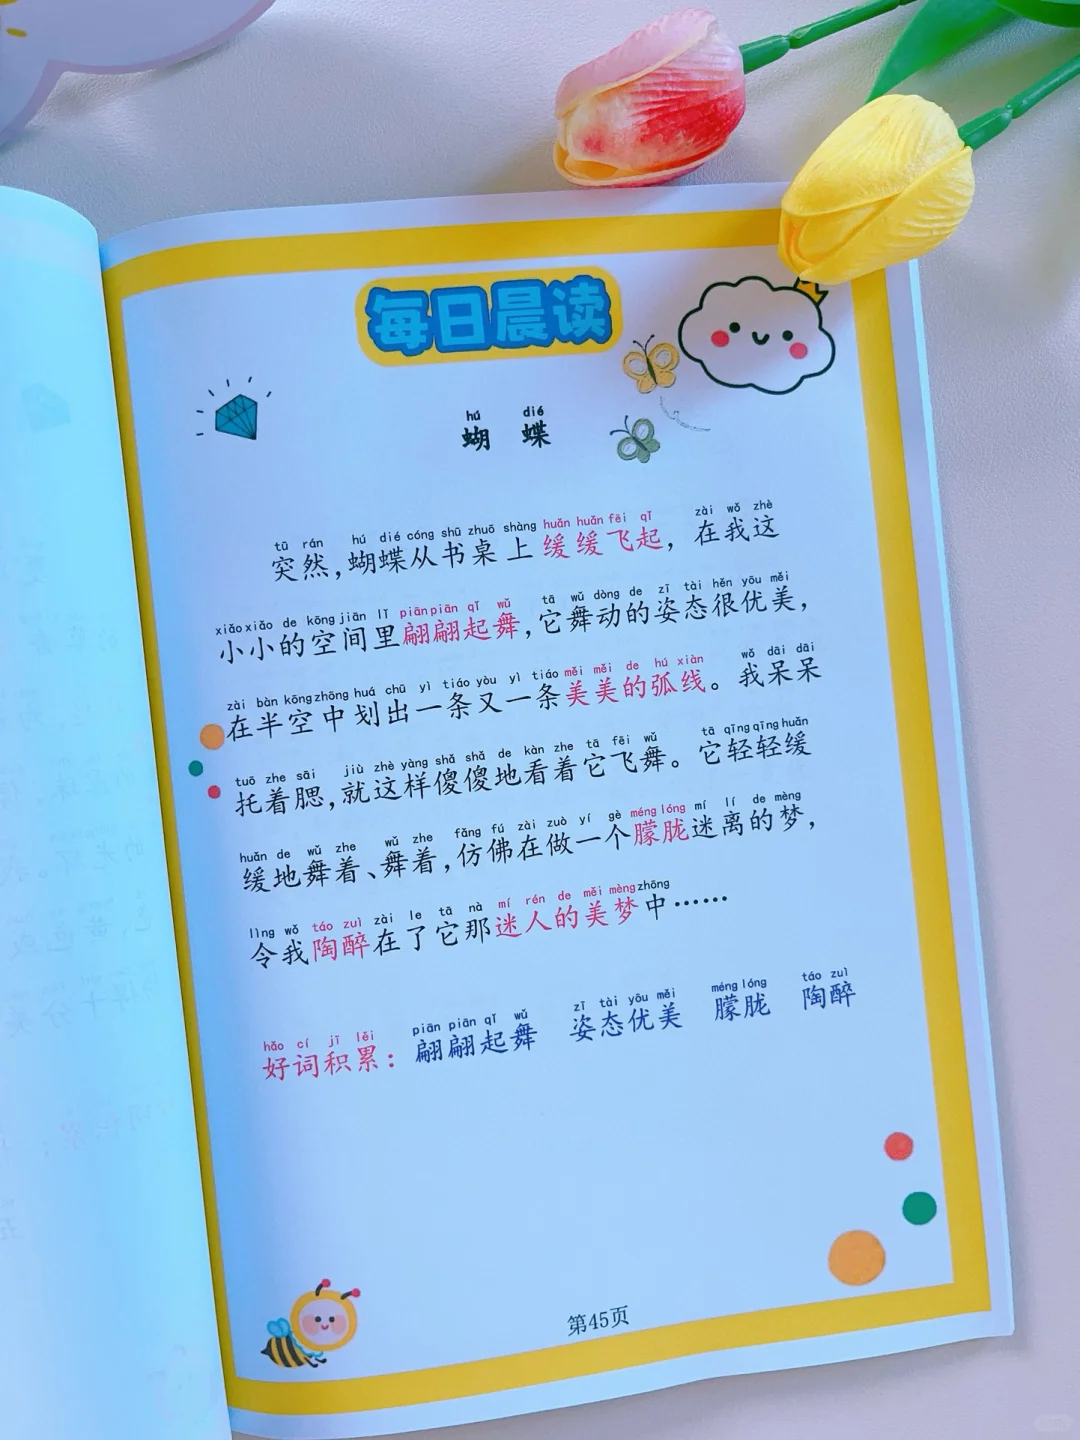 每日晨读
hú dié
蝴蝶
tū rán hú dié cóng shū zhuō shàng huǎn huǎn fēi qǐ zài wǒ zhè
突然,蝴蝶从书桌上缓缓飞起,在我这
xiǎo xiǎo de kōng jiān lǐ piān piān qǐ wǔ tā wǔ dòng de zī tài hěn yōu měi
小小的空间里翩翩起舞,它舞动的姿态很优美,
zài bàn kōng zhōng huá chū yì tiáo yòu yì tiáo měi měi de hú xiàn wǒ dāi dāi
在半空中划出一条又一条美美的弧线。我呆呆
tuō zhe sāi jiù zhè yàng shǎ shǎ de kàn zhe tā fēi wǔ tā qīng qīng huǎn
托着腮,就这样傻傻地看着它飞舞。它轻轻缓
huǎn de wǔ zhe wǔ zhe fǎng fú zài zuò yí gè méng lóng mí lí de mèng
缓地舞着、舞着,仿佛在做一个朦胧迷离的梦,
lìng wǒ táo zuì zài le tā nà mí rén de měi mèng zhōng
令我陶醉在了它那迷人的美梦中……
hǎo cí jī lěi piān piān qǐ wǔ zī tài yōu měi méng lóng táo zuì
好词积累:翩翩起舞 姿态优美 朦胧 陶醉
第45页